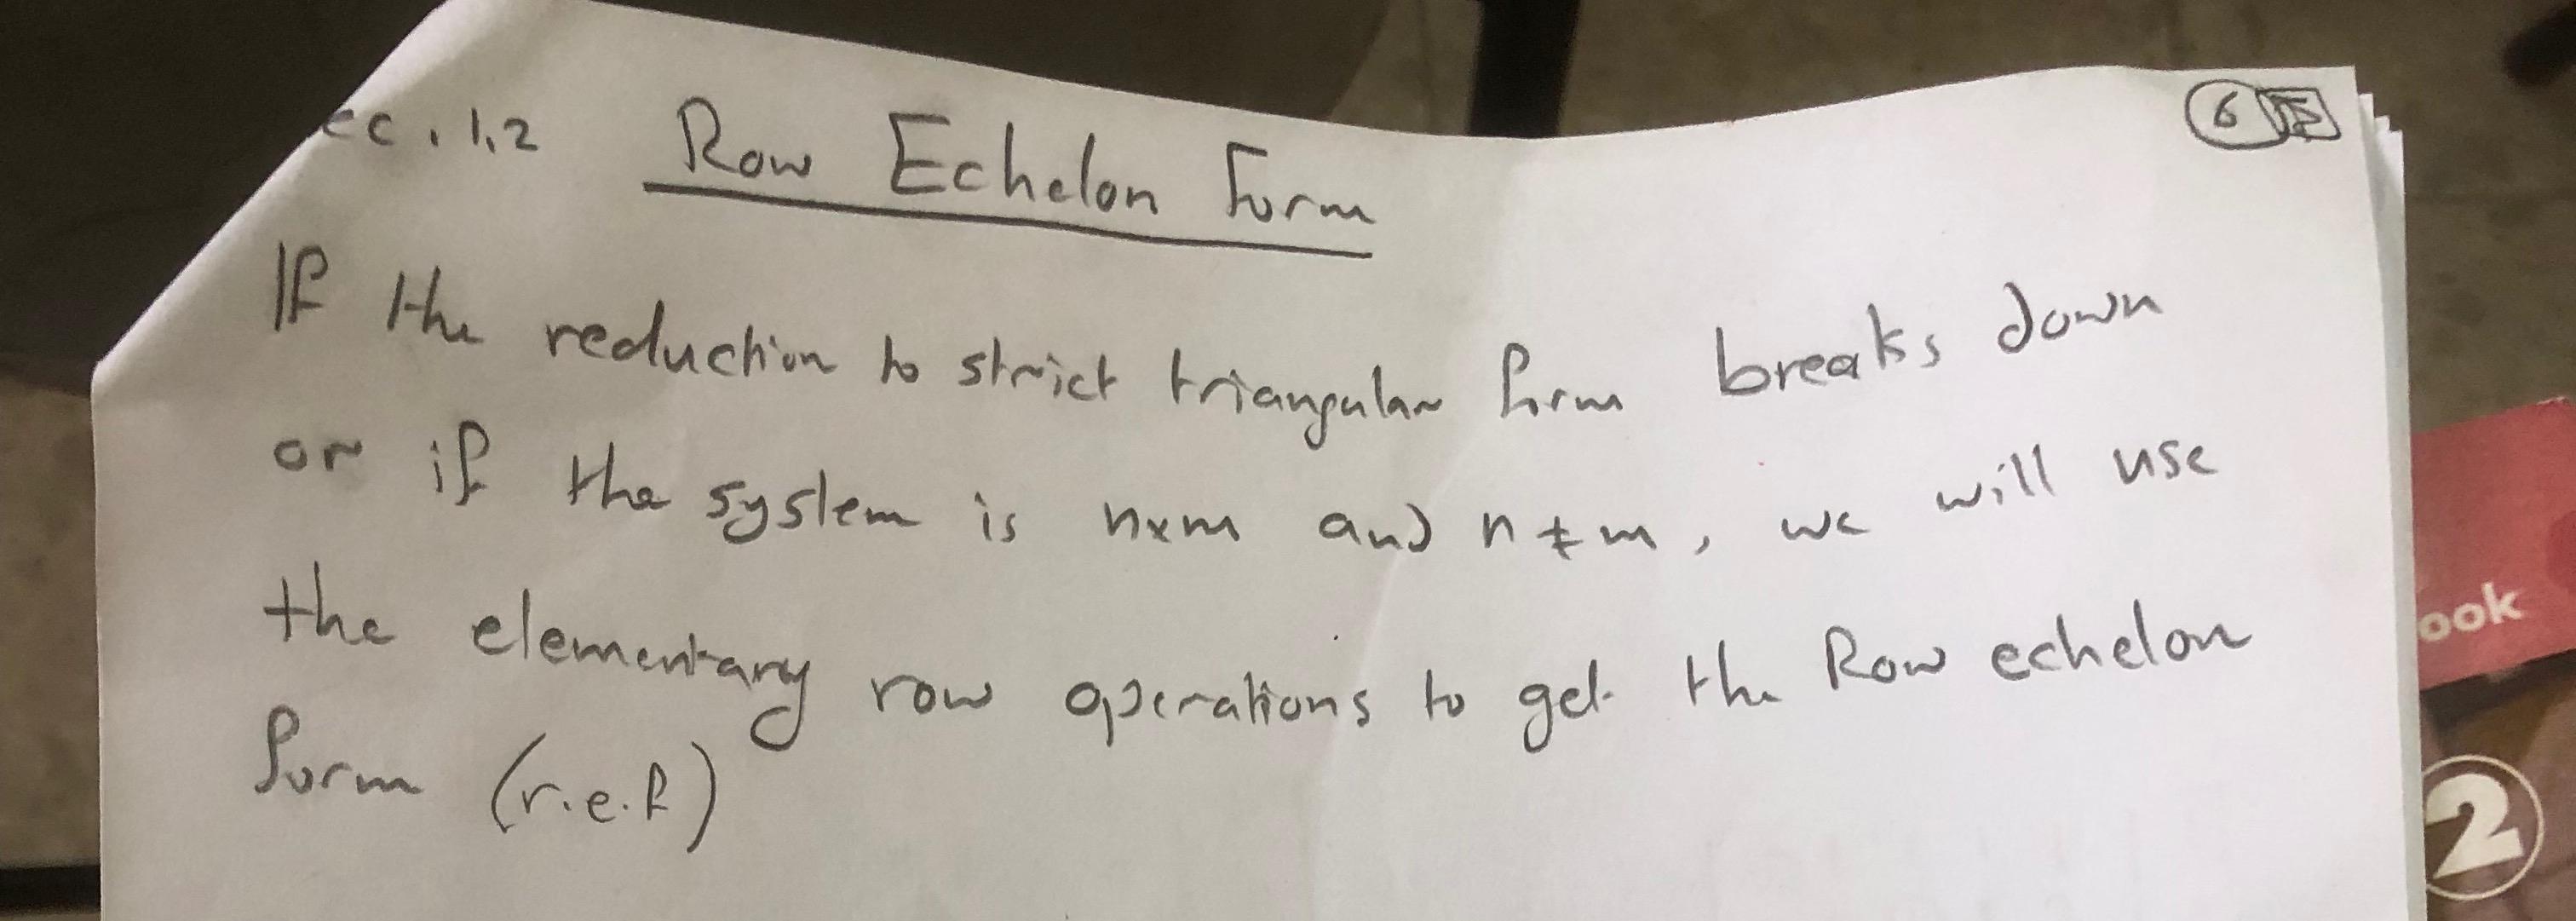 ec. 1.2 Row Echelon Form
6
If the reduction to strict triangular form breaks down
or if the system is n×m and n≠m, we will use
the elementary row operations to get the Row echelon
form (r.e.f)
ook
2